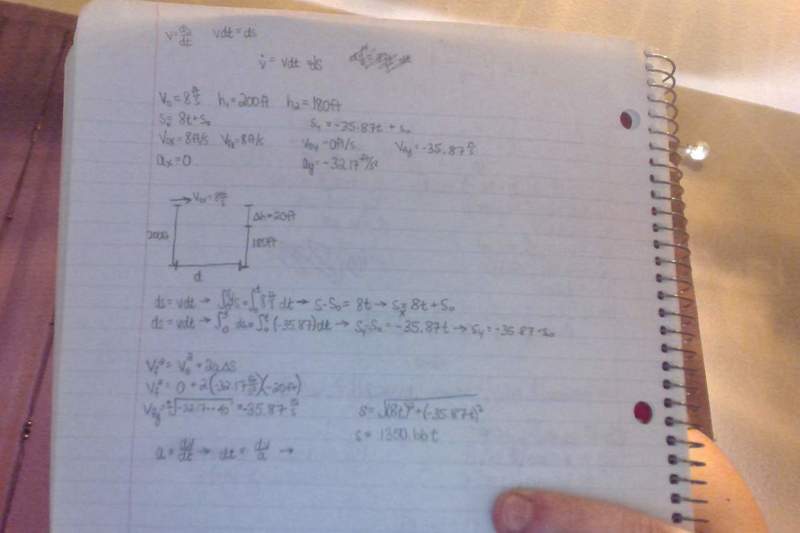 v = ds/dt   vdt = ds
v̇ = vdt ds
V₀ = 8 ft/s   h₁ = 200ft   h₂ = 180ft
Sₓ = 8t + S₀   Sᵧ = -35.87t + S₀
V₀ₓ = 8ft/s   Vfₓ = 8ft/s   V₀ᵧ = 0ft/s   Vfᵧ = -35.87 ft/s
aₓ = 0   aᵧ = -32.17 ft/s²
V₀ₓ = 8 ft/s
Δh = 20ft
200ft   180ft
d
ds = vdt → ∫ds = ∫8 ft/s dt → S-S₀ = 8t → Sₓ = 8t + S₀
ds = vdt → ∫ds = ∫(-35.87)dt → Sᵧ-S₀ = -35.87t → Sᵧ = -35.87 - S₀
Vf² = V₀² + 2aΔS
Vf² = 0 + 2(-32.17 ft/s²)(-20ft)
Vfᵧ = √-32.17·-40 = -35.87 ft/s   s = √(8t)²+(-35.87t)²
s = 1350.66t
a = dv/dt → dt = dv/a →